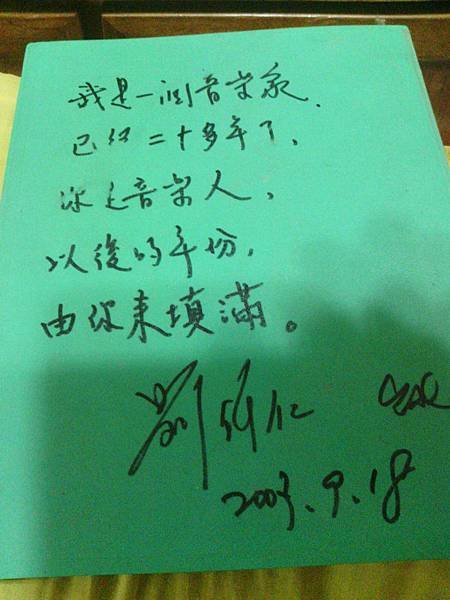 我是一個音樂家.
已經二十多年了、
你是音樂人,
以後的年份,
由你來填滿。
劉
2007.9.18